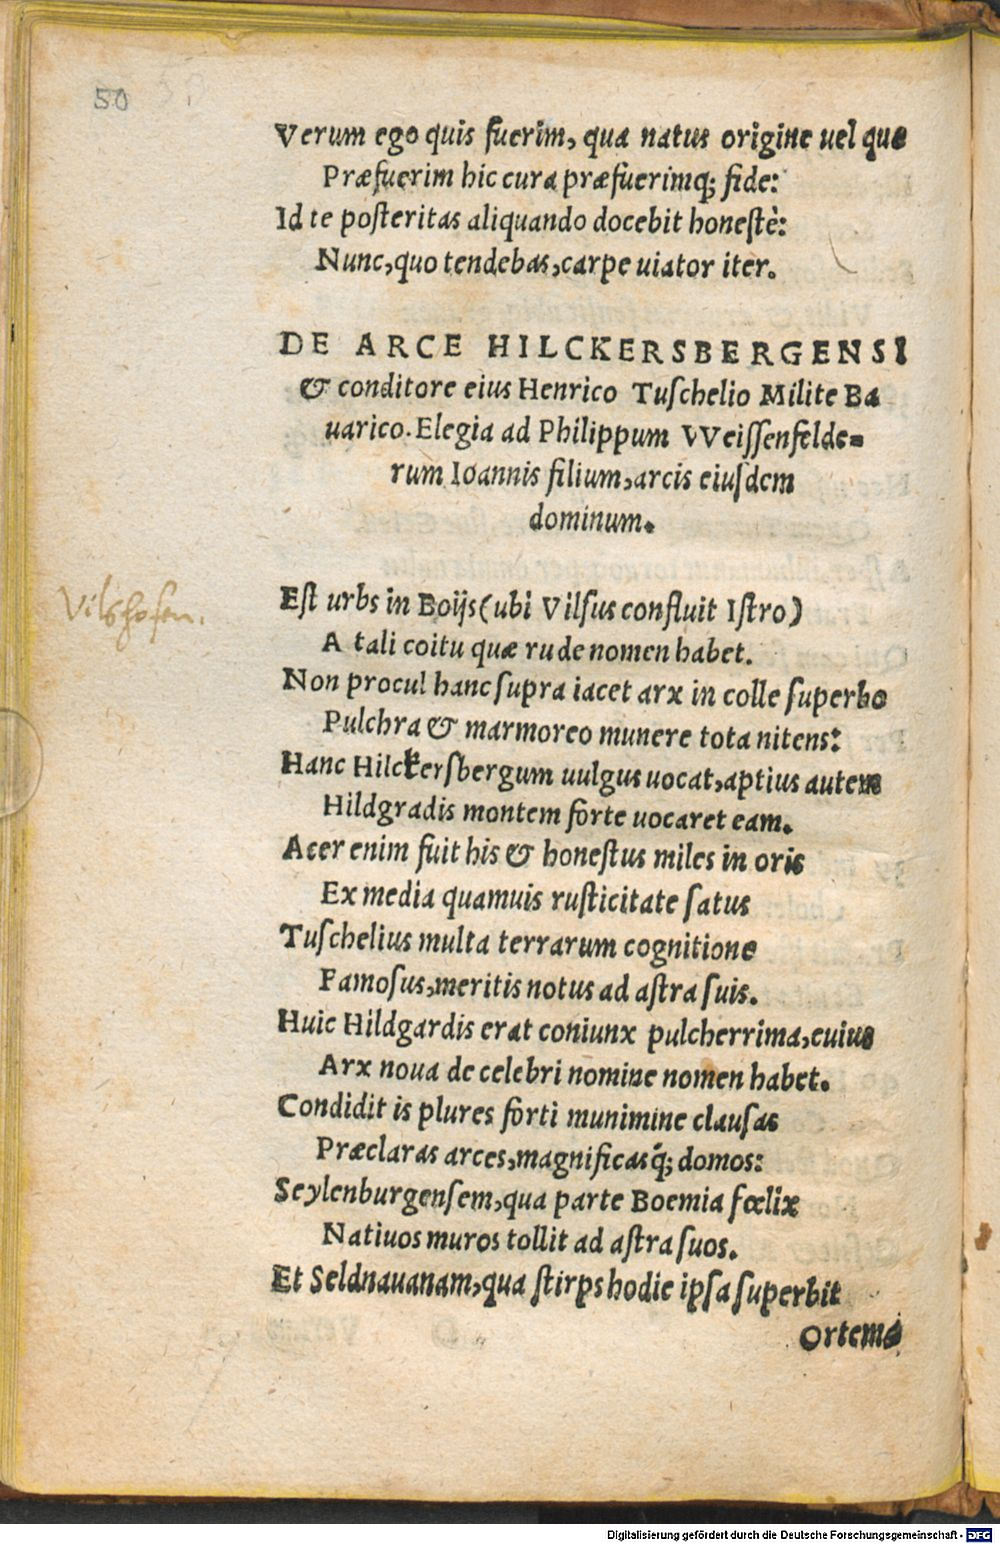 50
Verum ego quis fuerim, qua natus origine uel quo
Præfuerim hic cura præfuerimq; fide:
Id te posteritas aliquando docebit honestè:
Nunc, quo tendebas, carpe uiator iter.
DE ARCE HILCKERSBERGENSI
& conditore eius Henrico Tuschelio Milite Ba
uarico. Elegia ad Philippum VVeissenfelde=
rum Ioannis filium, arcis eiusdem
dominum.
Vilshofen.
Est urbs in Boijs (ubi Vilsus confluit Istro)
A tali coitu quæ rude nomen habet.
Non procul hanc supra iacet arx in colle superbo
Pulchra & marmoreo munere tota nitens:
Hanc Hilckersbergum uulgus uocat, aptius autem
Hildgradis montem forte uocaret eam.
Acer enim fuit his & honestus miles in oris
Ex media quamuis rusticitate satus
Tuschelius multa terrarum cognitione
Famosus, meritis notus ad astra suis.
Huic Hildgardis erat coniunx pulcherrima, cuius
Arx noua de celebri nomine nomen habet.
Condidit is plures forti munimine clausas
Præclaras arces, magnificasq́; domos:
Seylenburgensem, qua parte Boemia fœlix
Natiuos muros tollit ad astra suos.
Et Seldnauanam, qua stirps hodie ipsa superbit
Digitalisierung gefördert durch die Deutsche Forschungsgemeinschaft - DFG